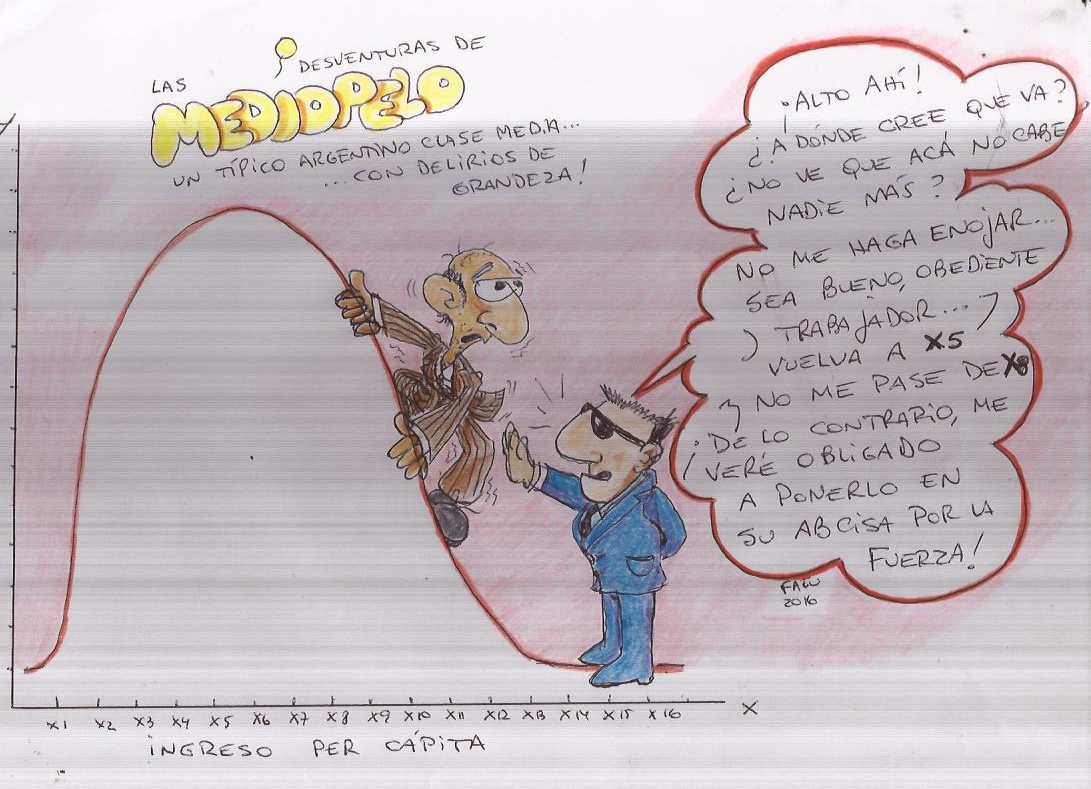 LAS
DESVENTURAS DE
MEDIOPELO
UN TÍPICO ARGENTINO CLASE MEDIA...
...CON DELIRIOS DE
GRANDEZA!
¡ALTO AHÍ!
¿A DÓNDE CREE QUE VA?
¿NO VE QUE ACÁ NO CABE
NADIE MÁS?
NO ME HAGA ENOJAR...
SEA BUENO, OBEDIENTE
y TRABAJADOR...
VUELVA A X5
y NO ME PASE DE X8
¡DE LO CONTRARIO, ME
VERÉ OBLIGADO
A PONERLO EN
SU ABCISA POR LA
FUERZA!
FACU
2016
y
X1 X2 X3 X4 X5 X6 X7 X8 X9 X10 X11 X12 X13 X14 X15 X16 X
INGRESO PER CÁPITA